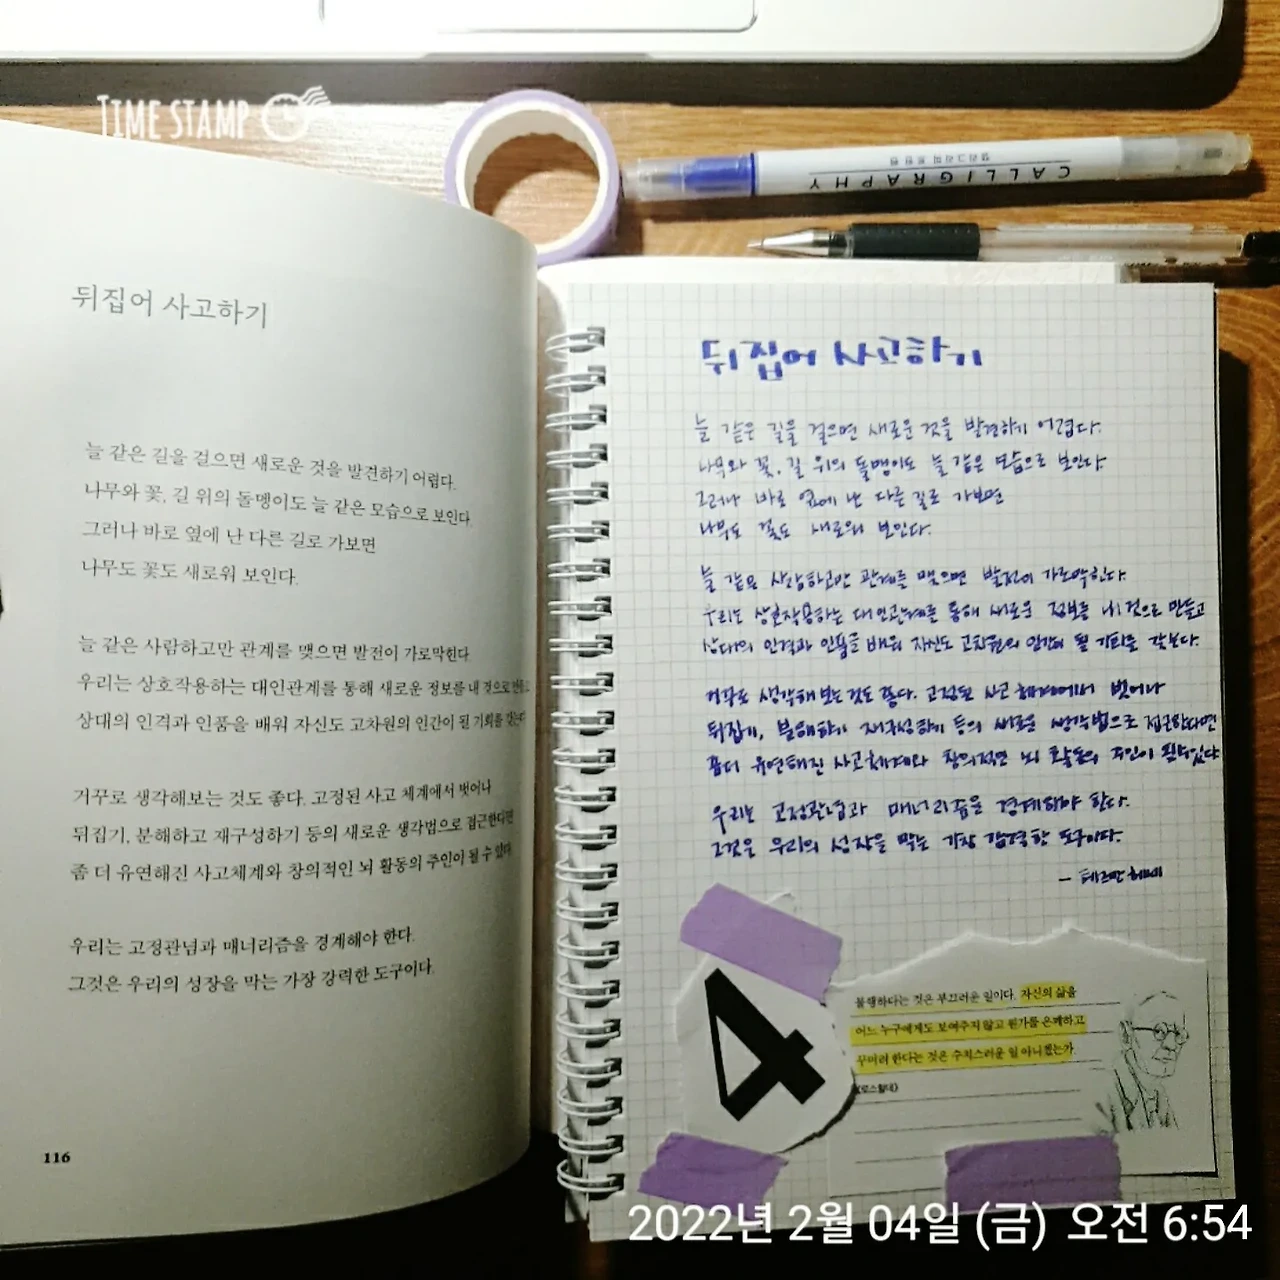 TIME STAMP
CALLIGRAPHY
캘리그라피 트윈펜
뒤집어 사고하기
늘 같은 길을 걸으면 새로운 것을 발견하기 어렵다.
나무와 꽃, 길 위의 돌멩이도 늘 같은 모습으로 보인다.
그러나 바로 옆에 난 다른 길로 가보면
나무도 꽃도 새로워 보인다.
늘 같은 사람하고만 관계를 맺으면 발전이 가로막힌다.
우리는 상호작용하는 대인관계를 통해 새로운 정보를 내 것으로 만들고
상대의 인격과 인품을 배워 자신도 고차원의 인간이 될 기회를 갖는다.
거꾸로 생각해보는 것도 좋다. 고정된 사고 체계에서 벗어나
뒤집기, 분해하고 재구성하기 등의 새로운 생각법으로 접근한다면
좀 더 유연해진 사고체계와 창의적인 뇌 활동의 주인이 될 수 있다.
우리는 고정관념과 매너리즘을 경계해야 한다.
그것은 우리의 성장을 막는 가장 강력한 도구이다.
116
뒤집어 사고하기
늘 같은 길을 걸으면 새로운 것을 발견하기 어렵다.
나무와 꽃, 길 위의 돌멩이도 늘 같은 모습으로 보인다
그러나 바로 옆에 난 다른 길로 가보면
나무도 꽃도 새로워 보인다.
늘 같은 사람하고만 관계를 맺으면 발전이 가로막힌다.
우리는 상호작용하는 대인관계를 통해 새로운 정보를 내 것으로 만들고
상대의 인격과 인품을 배워 자신도 고차원의 인간이 될 기회를 갖는다.
거꾸로 생각해보는 것도 좋다. 고정된 사고 체계에서 벗어나
뒤집기, 분해하기 재구성하기 등의 새로운 생각법으로 접근한다면
좀더 유연해진 사고체계와 창의적인 뇌 활동의 주인이 될 수 있다
우리는 고정관념과 매너리즘을 경계해야 한다.
그것은 우리의 성장을 막는 가장 강력한 도구이다.
- 헤르만 헤세
4
불행하다는 것은 부끄러운 일이다. 자신의 삶을
어느 누구에게도 보여주지 않고 뭔가를 은폐하고
꾸미려 한다는 것은 수치스러운 일 아니겠는가.
《로스할데》
2022년 2월 04일 (금) 오전 6:54